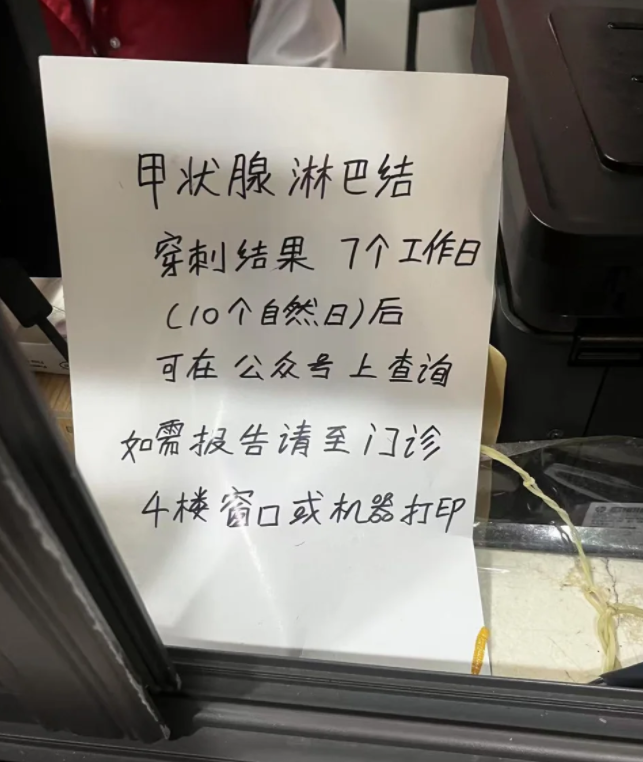 甲状腺淋巴结
穿刺结果 7个工作日
(10个自然日)后
可在公众号上查询
如需报告请至门诊
4楼窗口或机器打印